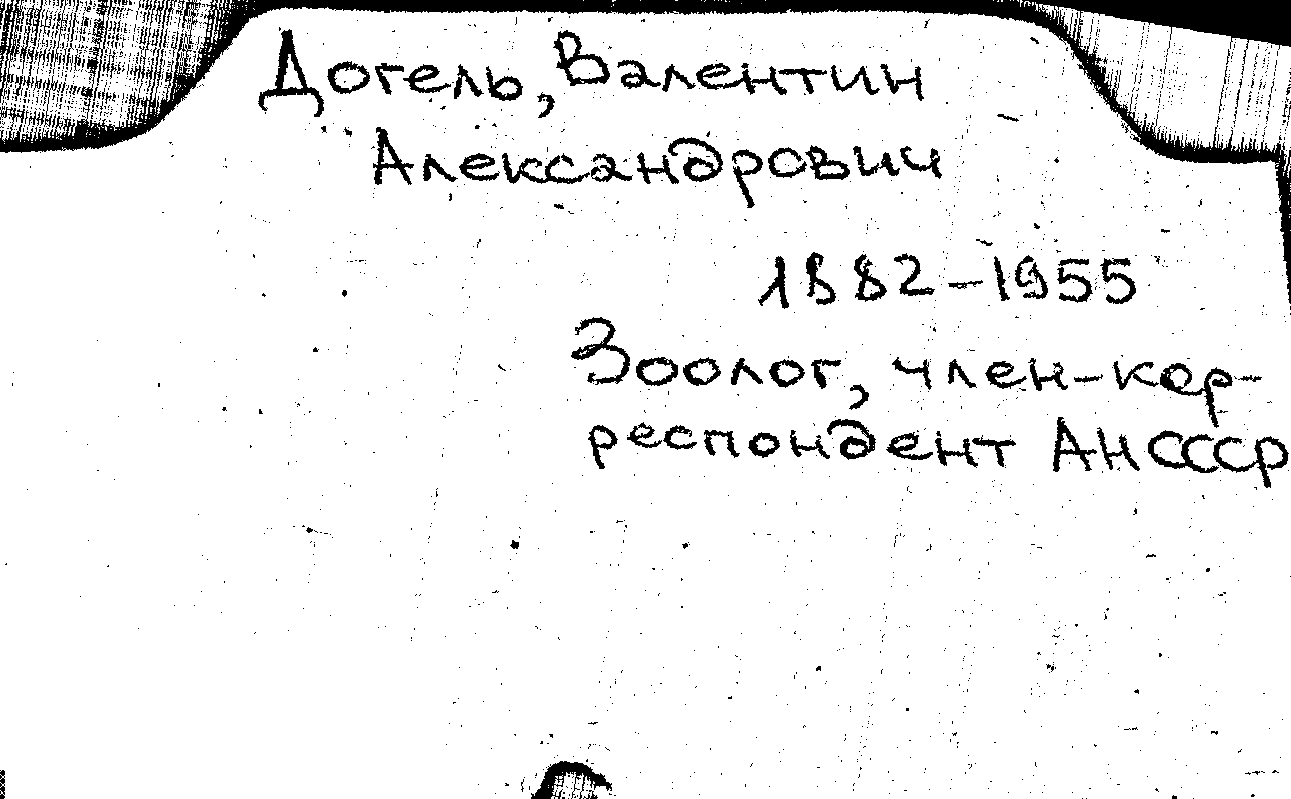 Догель, Валентин
Александрович
1882-1955
Зоолог, член-кор-
респондент АНСССР